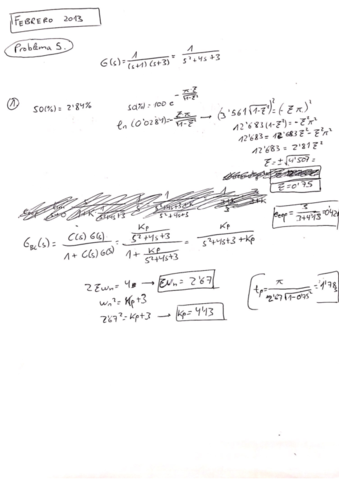 FEBRERO 2013
Problema 5.
G(s) = 1/((s+1)(s+3)) = 1/(s²+4s+3)
①
SO(%) = 2'84%
s(%) = 100 e^(-πz/√(1-z²))
ln(0'0284) = -zπ/√(1-z²) → (3'561√(1-z²))² = (-zπ)²
12'683(1-z²) = -z²π²
12'683 = 12'683z² - z²π²
12'683 = 2'81z²
z = ±√4'507 =
z = 0'75
G_BC(s) = C(s)G(s)/(1+C(s)G(s)) = (Kp/(s²+4s+3))/(1+Kp/(s²+4s+3)) = Kp/(s²+4s+3+Kp)
2zωn = 4 → ωn = 2'67
ωn² = Kp+3
2'67² = Kp+3 → Kp = 4'43
tp = π/(2'67√(1-0'75²)) = 1'78